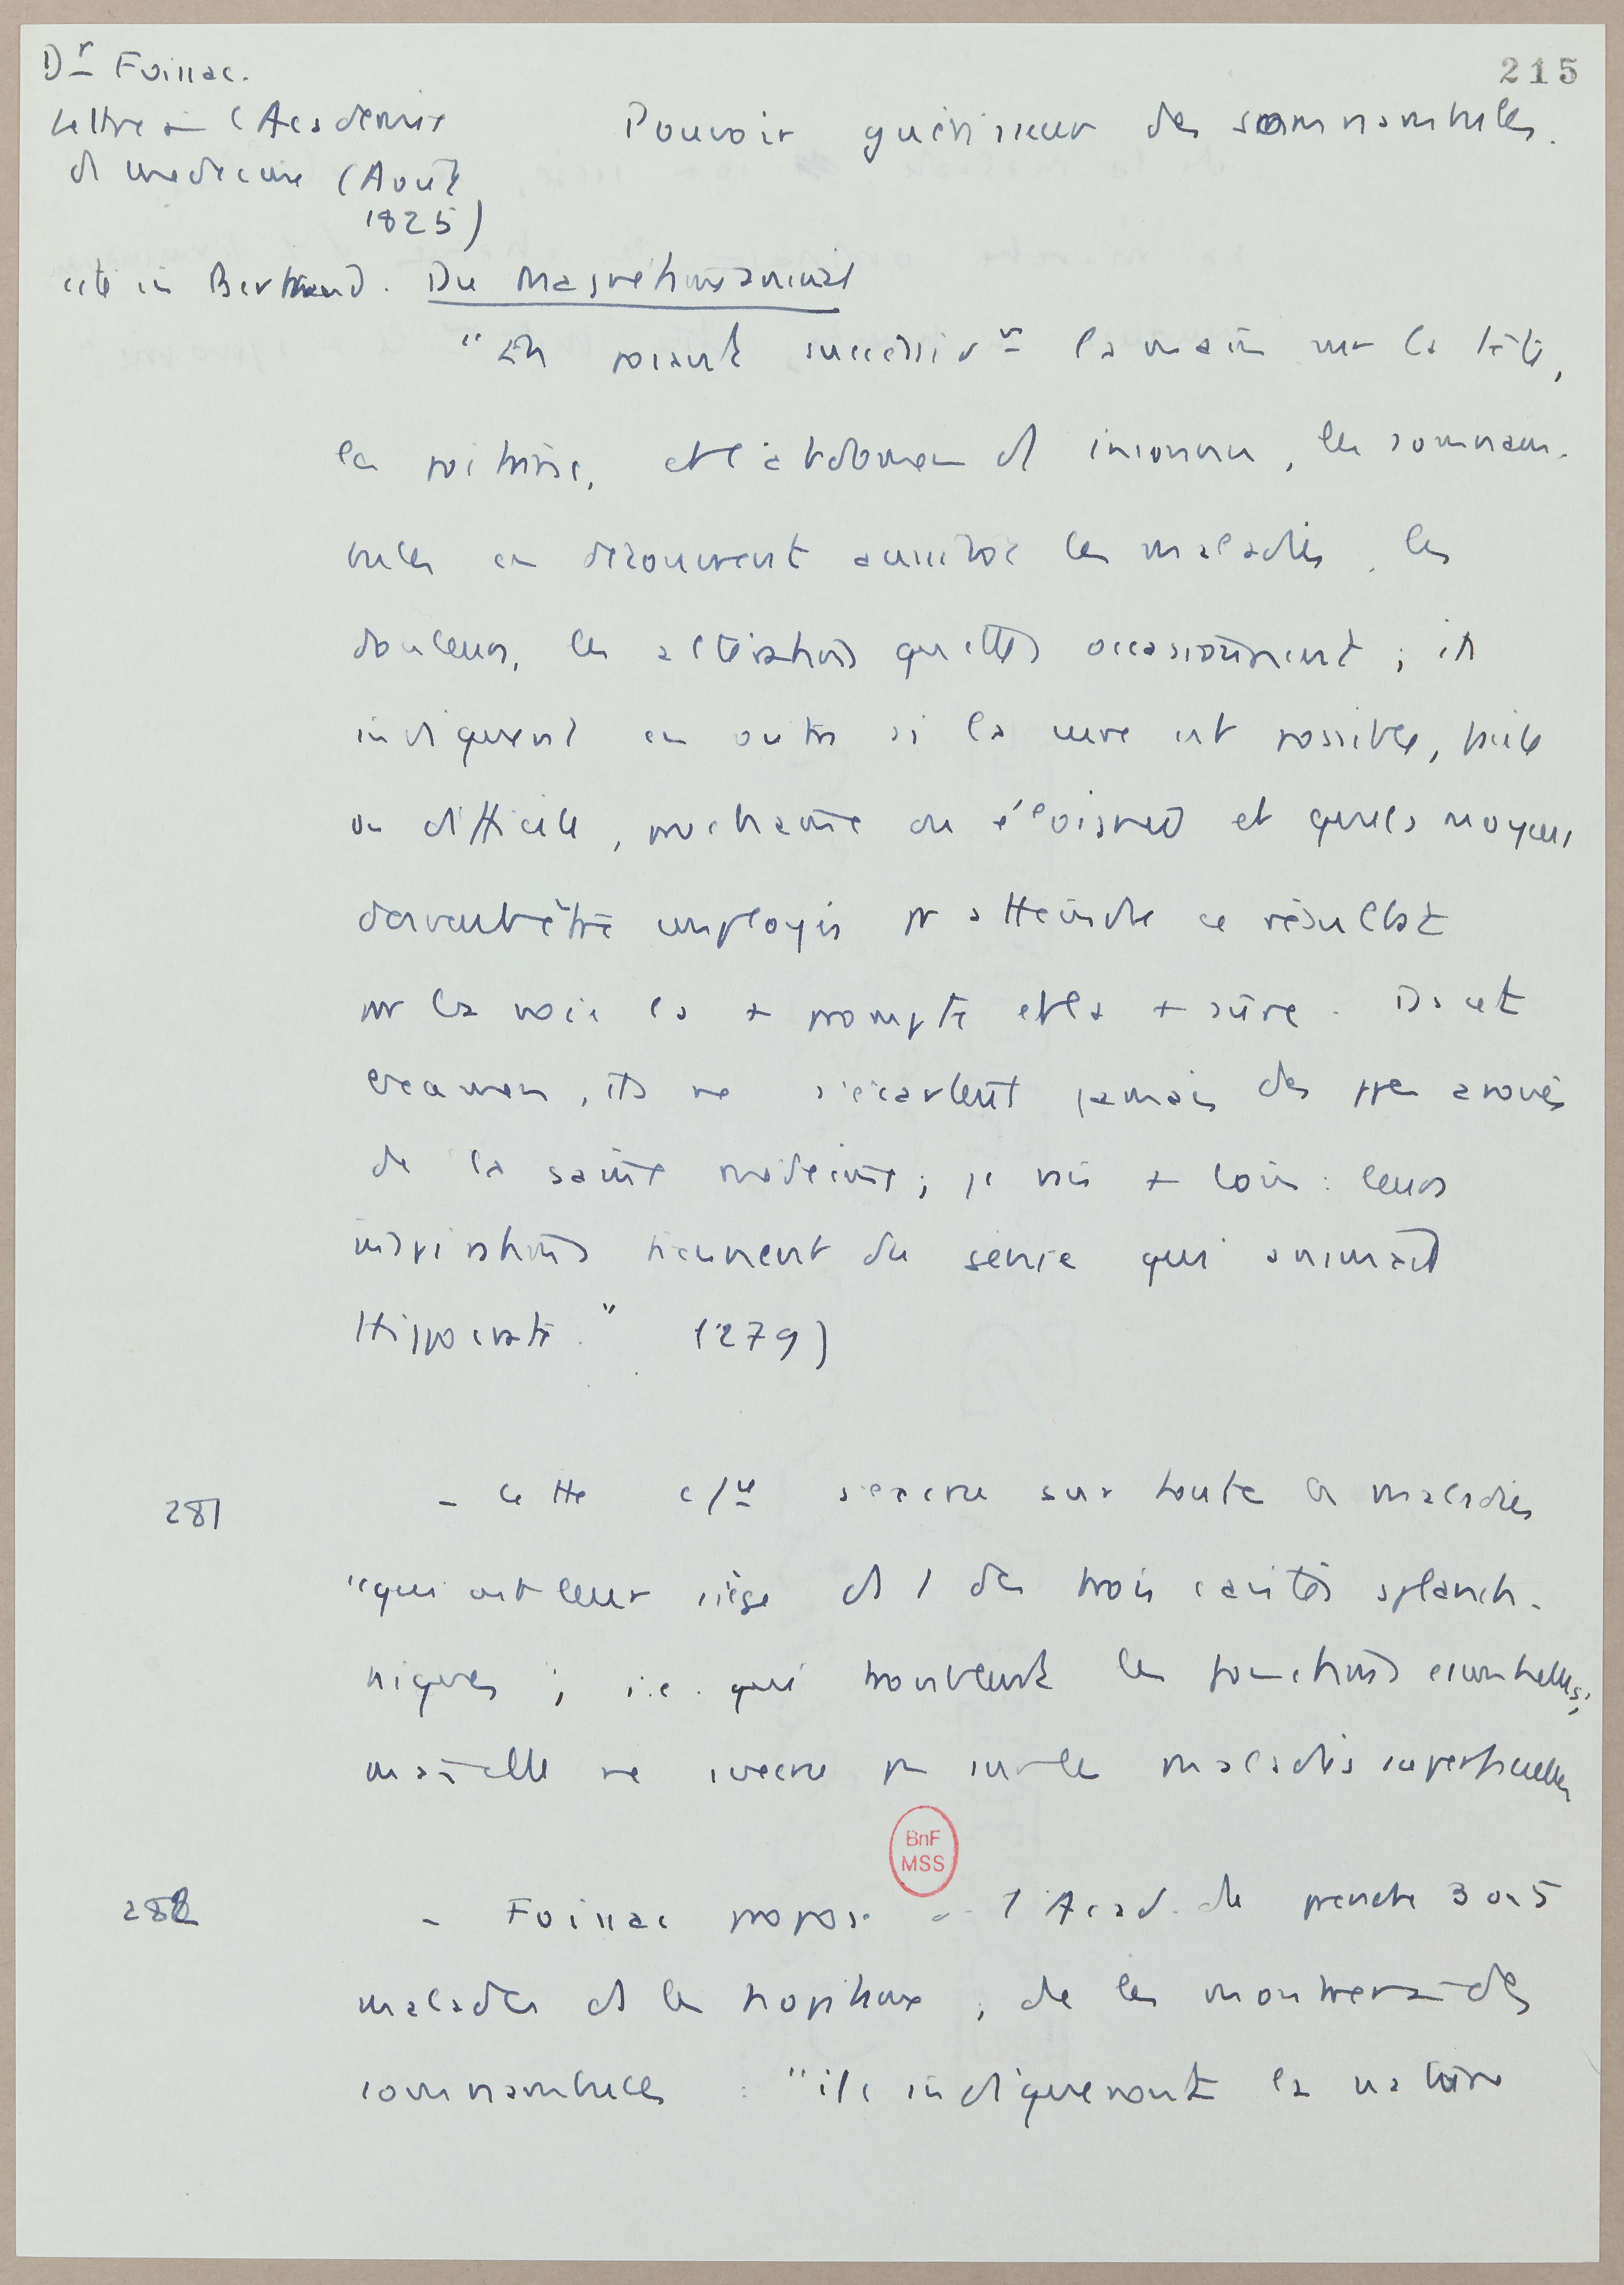 215
Dr Foissac.
Lettre à l'Académie
de médecine (Août
1825)
Pouvoir guérisseur des somnambules.
cité in Bertrand. Du Magnétisme animal
"En posant successivt la main sur la tête,
la poitrine, et l'abdomen d' inconnu, les somnam-
bules en découvrent aussitôt les maladies, les
douleurs, les altérations qu'elles occasionnent ; ils
indiquent en outre si la cure est possible, facile
ou difficile, prochaine ou éloignée et quels moyens
doivent être employés pr atteindre ce résultat
par la voie la + prompte et la + sûre. Ds cet
examen, ils ne s'écartent jamais des ppes avoués
de la saine médecine ; je vais + loin : leurs
inspirations tiennent du génie qui animait
Hippocrate." (279)
281
- Cette s'exerce sur toute les maladies
"qui ont leur siège ds 1 des trois cavités splanch-
niques ; i.e. qui troublent les fonctions essentielles;
mais elle ne s'exerce pas sur les maladies superficielles
BnF
MSS
282
- Foissac propose à l'Acad. de prendre 3 ou 5
malades ds les hôpitaux, de les montrer à des
somnambules : "ils indiqueront la nature